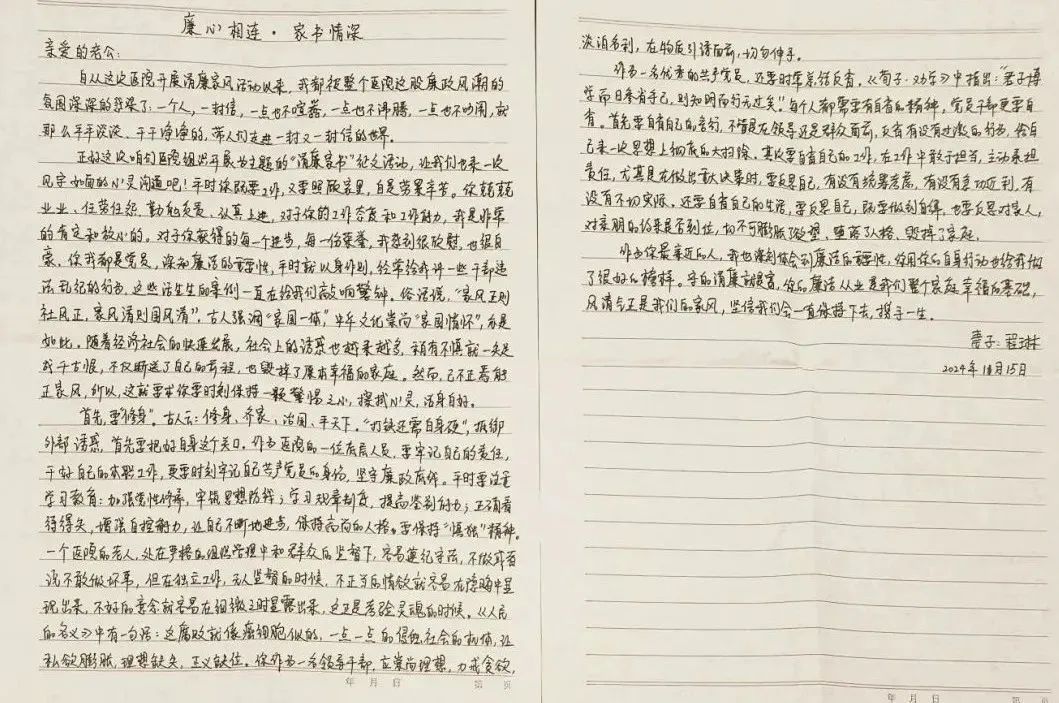 廉心相连·家书情深
亲爱的老公:
自从这次医院开展清廉家风活动以来,我都被整个医院这股廉政风潮的
氛围深深的感染了。一个人,一封信,一点也不喧嚣,一点也不沸腾,一点也不吵闹,就
那么平平淡淡、干干净净的,带人们走进一封又一封信的世界。
正好这次咱们医院组织开展为主题的“清廉家书”征文活动,让我们也来一次
见字如面的心灵沟通吧!平时你既要工作,又要照顾家里,自是劳累辛苦。你兢兢
业业、任劳任怨、勤勉负责、认真上进,对于你的工作态度和工作能力,我是非常
的肯定和放心的。对于你获得的每一个进步,每一份荣誉,我感到很欣慰,也很自
豪。你我都是党员,深知廉洁的重要性,平时就以身作则,经常给我讲一些干部违
法乱纪的行为,这些活生生的案例一直在给我们敲响警钟。俗话说,“家风正则
社风正,家风清则国风清”。古人强调“家国一体”,中华文化崇尚“家国情怀”,亦是
如此。随着经济社会的快速发展,社会上的诱惑也越来越多,稍有不慎就一失足
成千古恨,不仅断送了自己的前程,也毁掉了原本幸福的家庭。然而,己不正焉能
正家风,所以,这就要求你要时刻保持一颗警惕之心,擦拭心灵,洁身自好。
首先,要“修身”。古人云:修身、齐家、治国、平天下。“打铁还需自身硬”,抵御
外部诱惑,首先要把好自身这个关口。作为医院的一位底层人员,要牢记自己的责任,
干好自己的本职工作,更要时刻牢记自己共产党员的身份,坚守廉政底线。平时要注重
学习教育:加强党性修养,牢筑思想防线;学习规章制度,提高鉴别能力;正确看
待得失,增强自控能力,让自己不断地进步,保持高尚的人格。要保持“慎独”精神。
一个医院的老人,处在严格的组织管理中和群众的监督下,容易遵纪守法,不做或者
说不敢做坏事,但在独立工作,无人监督的时候,不正当的情欲就容易在隐晦中显
现出来,不好的意念就容易在细微之时显露出来,这正是考验灵魂的时候。《人民
的名义》中有一句话:这腐败就像癌细胞似的,一点一点的侵蚀社会的机体,让
私欲膨胀,理想缺失,正义缺位。你作为一名领导干部,应崇尚理想,力戒贪欲,
年 月 日 第 页
淡泊名利,在物质引诱面前,切勿伸手。
作为一名优秀的共产党员,还要时常总结反省。《荀子·劝学》中指出:“君子博
学而日参省乎己,则知明而行无过矣。”每个人都需要有自省的精神,党员干部更要自
省。首先要自省自己的言行,不管是在领导还是群众面前,反省有没有过激的行为,给自
己来一次思想上彻底的大扫除。其次要自省自己的工作,在工作中敢于担当,主动承担
责任,尤其是在做出重大决策时,要反思自己,有没有统筹考虑,有没有急功近利,有
没有不切实际。还要自省自己的生活,要反思自己,既要做到自律,也要反思对家人,
对亲朋的约束是否到位,切不可膨胀了欲望,堕落了人格,毁掉了家庭。
作为你最亲近的人,我也深刻体会到廉洁的重要性,你用你的自身行动也给我做
了很好的榜样。守的清廉就是富,你的廉洁从业是我们整个家庭幸福的基础,
风清气正是我们的家风,坚信我们会一直保持下去,携手一生。
妻子:程琳
2024年10月15日
年 月 日 第 页